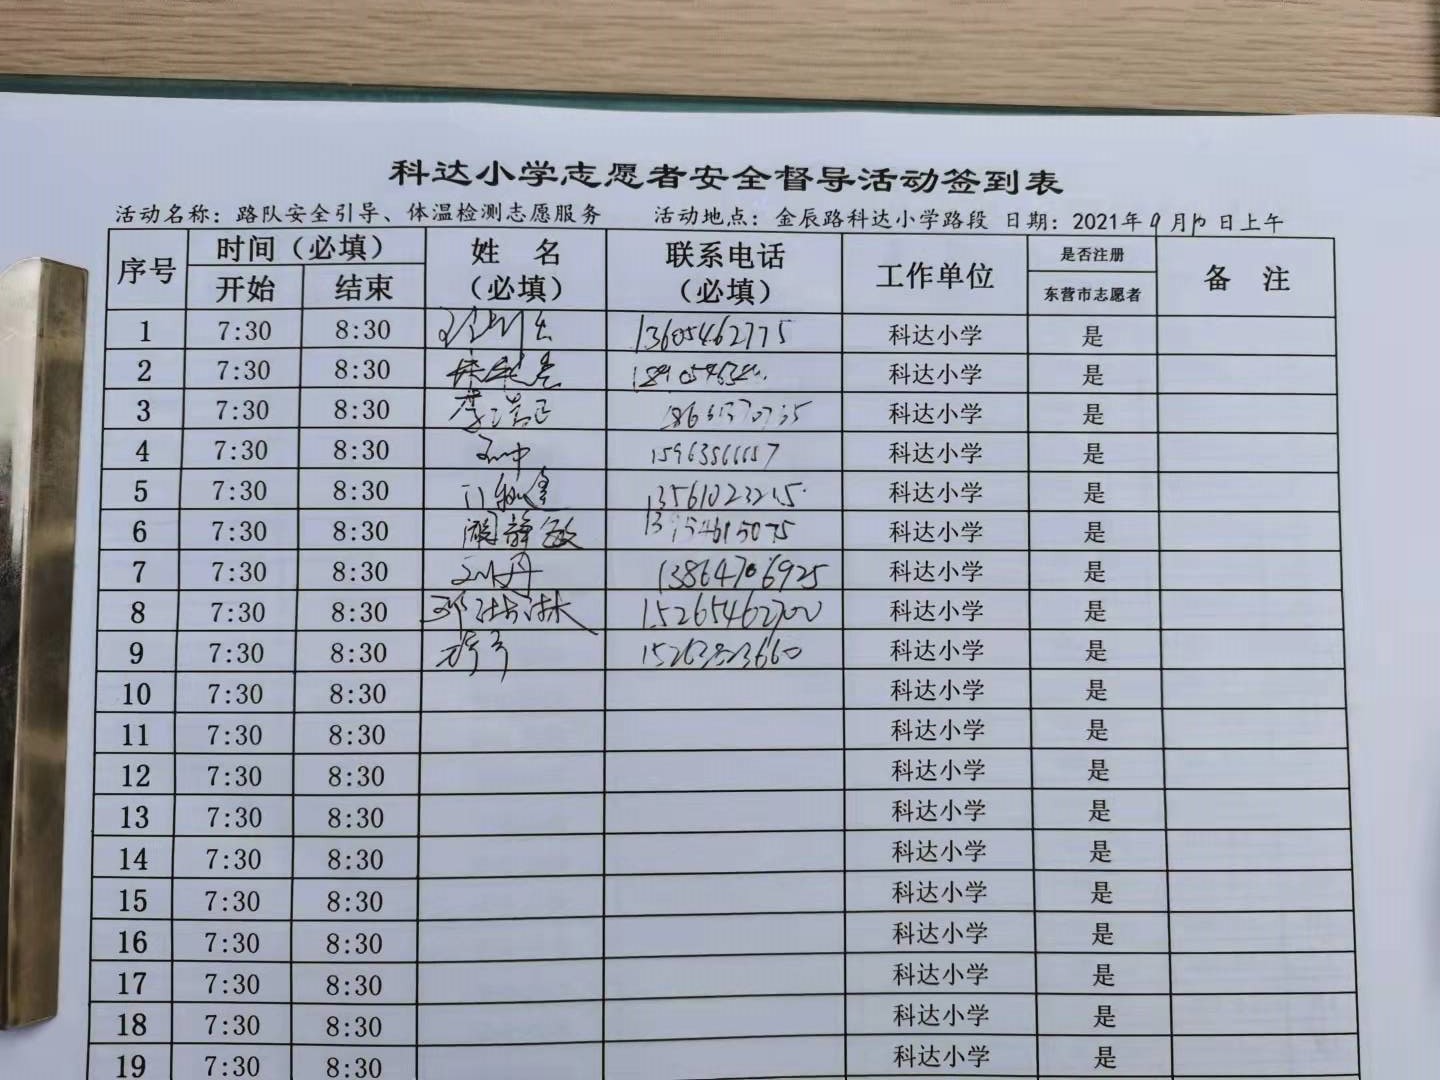 科达小学志愿者安全督导活动签到表
活动名称：路队安全引导、体温检测志愿服务 活动地点：金辰路科达小学路段 日期：2021年9月 日上午
序号 时间（必填） 姓 名（必填） 联系电话（必填） 工作单位 是否注册 备 注
开始 结束 东营市志愿者
1 7:30 8:30 13605462775 科达小学 是
2 7:30 8:30 科达小学 是
3 7:30 8:30 科达小学 是
4 7:30 8:30 科达小学 是
5 7:30 8:30 科达小学 是
6 7:30 8:30 静敏 科达小学 是
7 7:30 8:30 刘丹 13864706925 科达小学 是
8 7:30 8:30 邓淋淋 15265462700 科达小学 是
9 7:30 8:30 科达小学 是
10 7:30 8:30 科达小学 是
11 7:30 8:30 科达小学 是
12 7:30 8:30 科达小学 是
13 7:30 8:30 科达小学 是
14 7:30 8:30 科达小学 是
15 7:30 8:30 科达小学 是
16 7:30 8:30 科达小学 是
17 7:30 8:30 科达小学 是
18 7:30 8:30 科达小学 是
19 7:30 8:30 科达小学 是